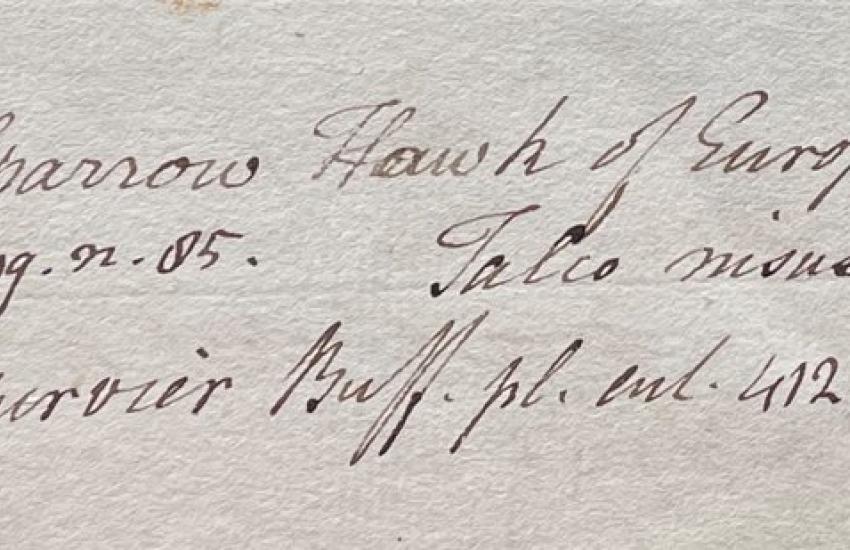 parrow Hawk of Europ
g. n. 85. Falco nisus
ervièr Buff. pl. enl. 412